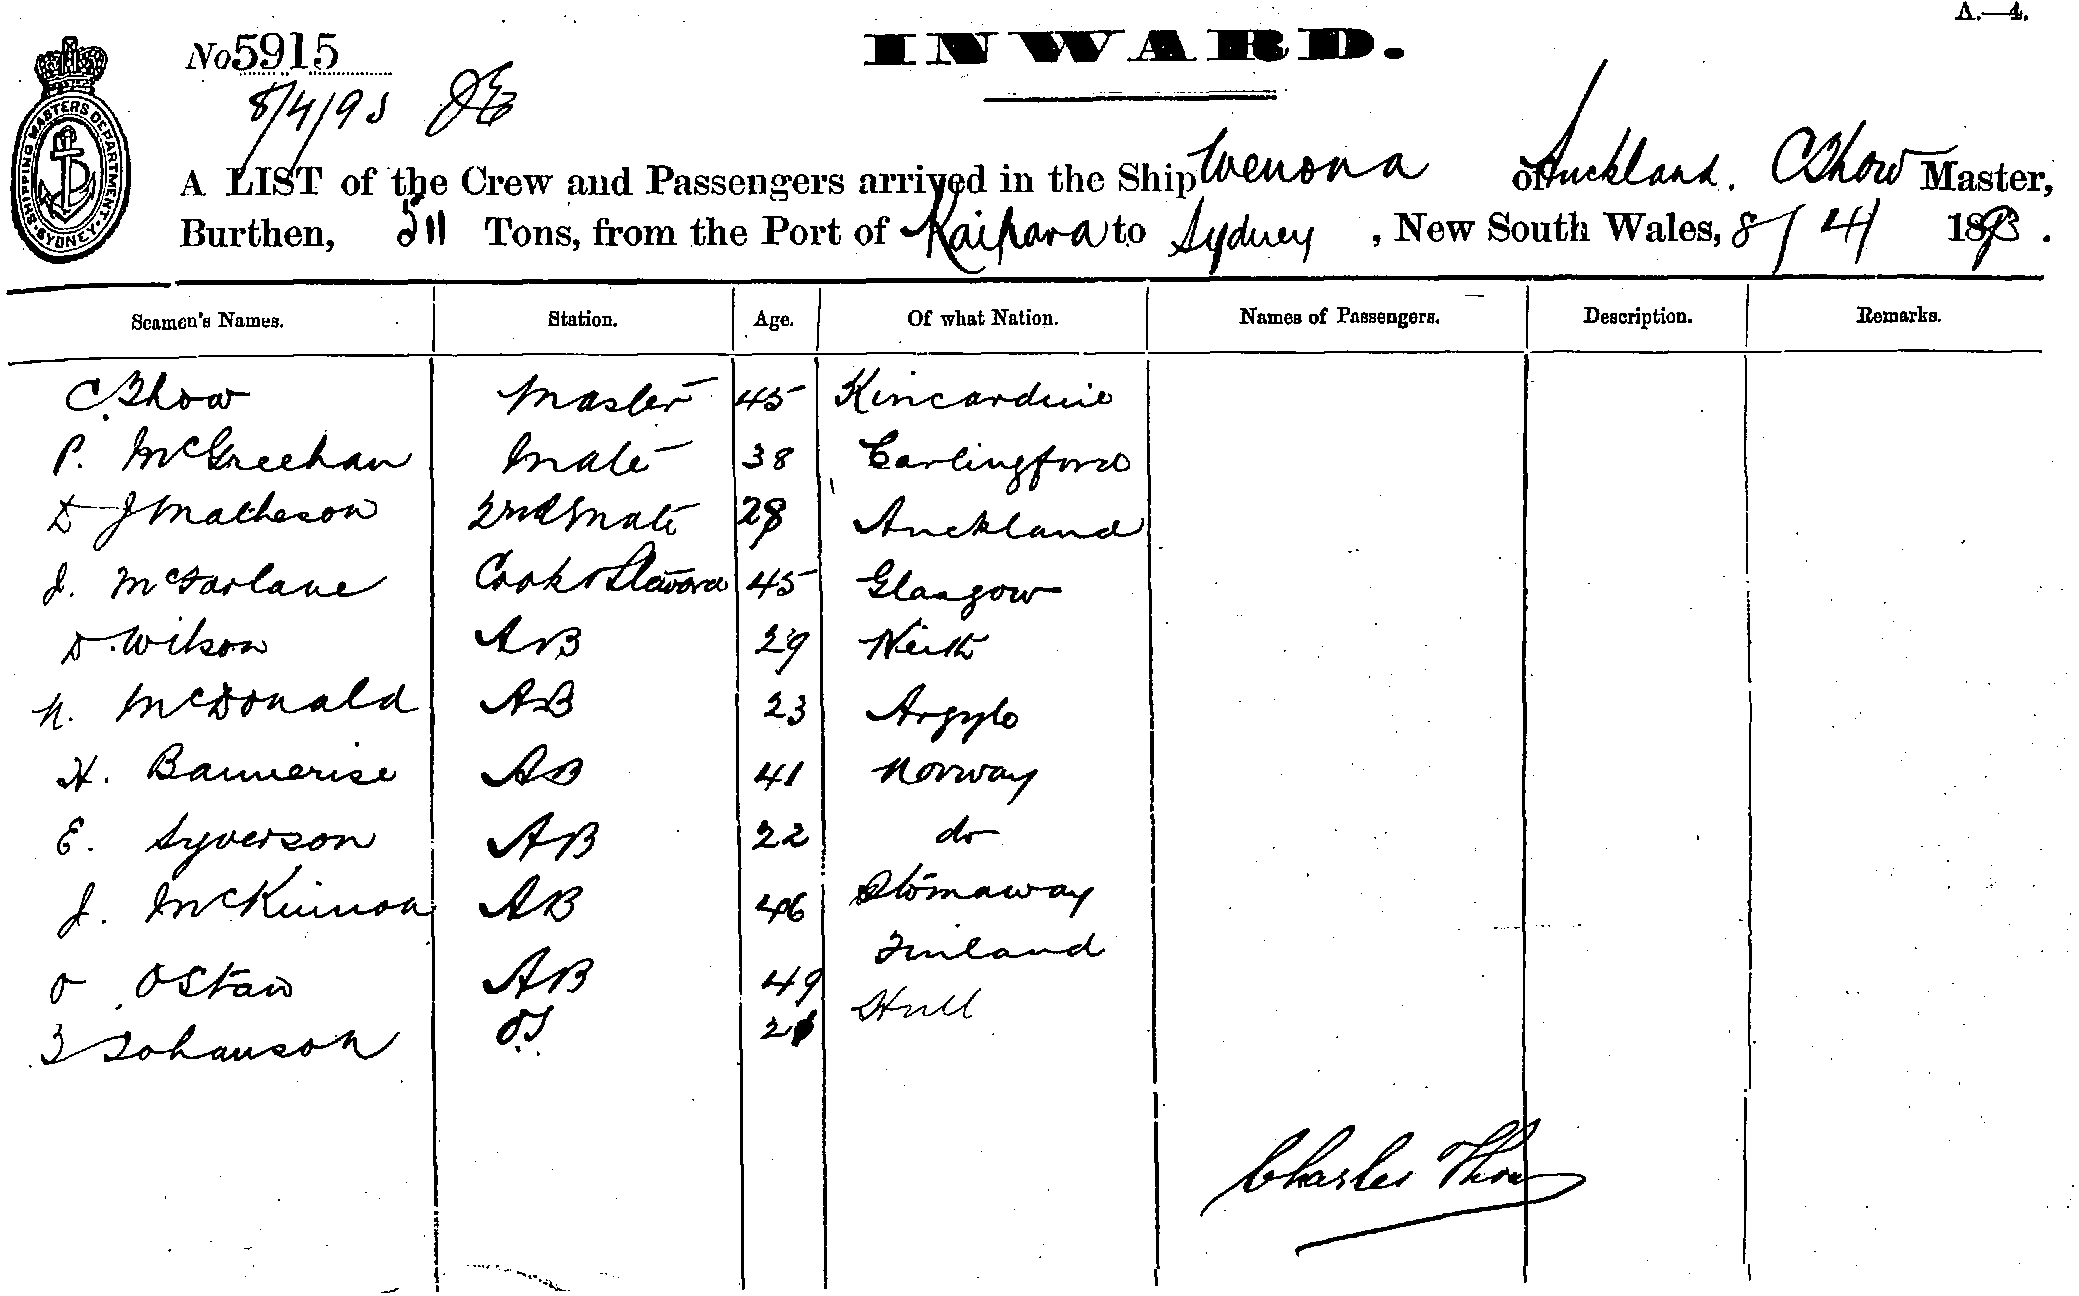 A.—4.
No 5915
INWARD.
8/4/93 JE
SHIPPING MASTERS DEPARTMENT SYDNEY
A LIST of the Crew and Passengers arrived in the Ship Wenona of Auckland. C Thow Master,
Burthen, 511 Tons, from the Port of Kaipara to Sydney, New South Wales, 8/4/ 1893.
Seamen's Names. Station. Age. Of what Nation. Names of Passengers. Description. Remarks.
C. Thow Master 45 Kincardine
P. McGreehan Mate 38 Carlingford
D J Matheson 2nd Mate 28 Auckland
J. McFarlane Cook & Steward 45 Glasgow
D. Wilson AB 29
N. McDonald AB 23 Argyle
H. AB 41 Norway
E. Syverson AB 22 do
J. McKinnon AB 46 Stornaway
O AB 49 Finland
J Johanson O.S. 21 Hull
Charles Thow